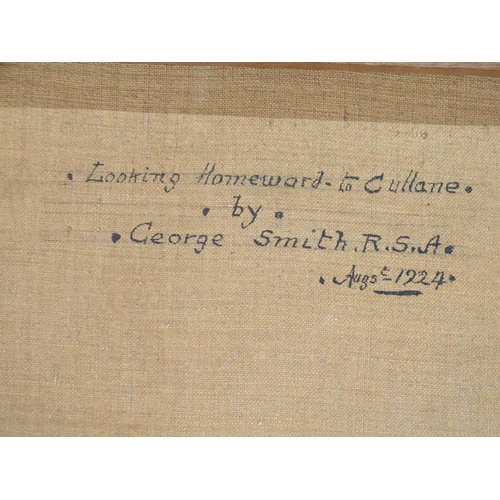 . Looking Homeward - to Gullane .
. by .
. George Smith. R.S.A.
. Augst 1924.